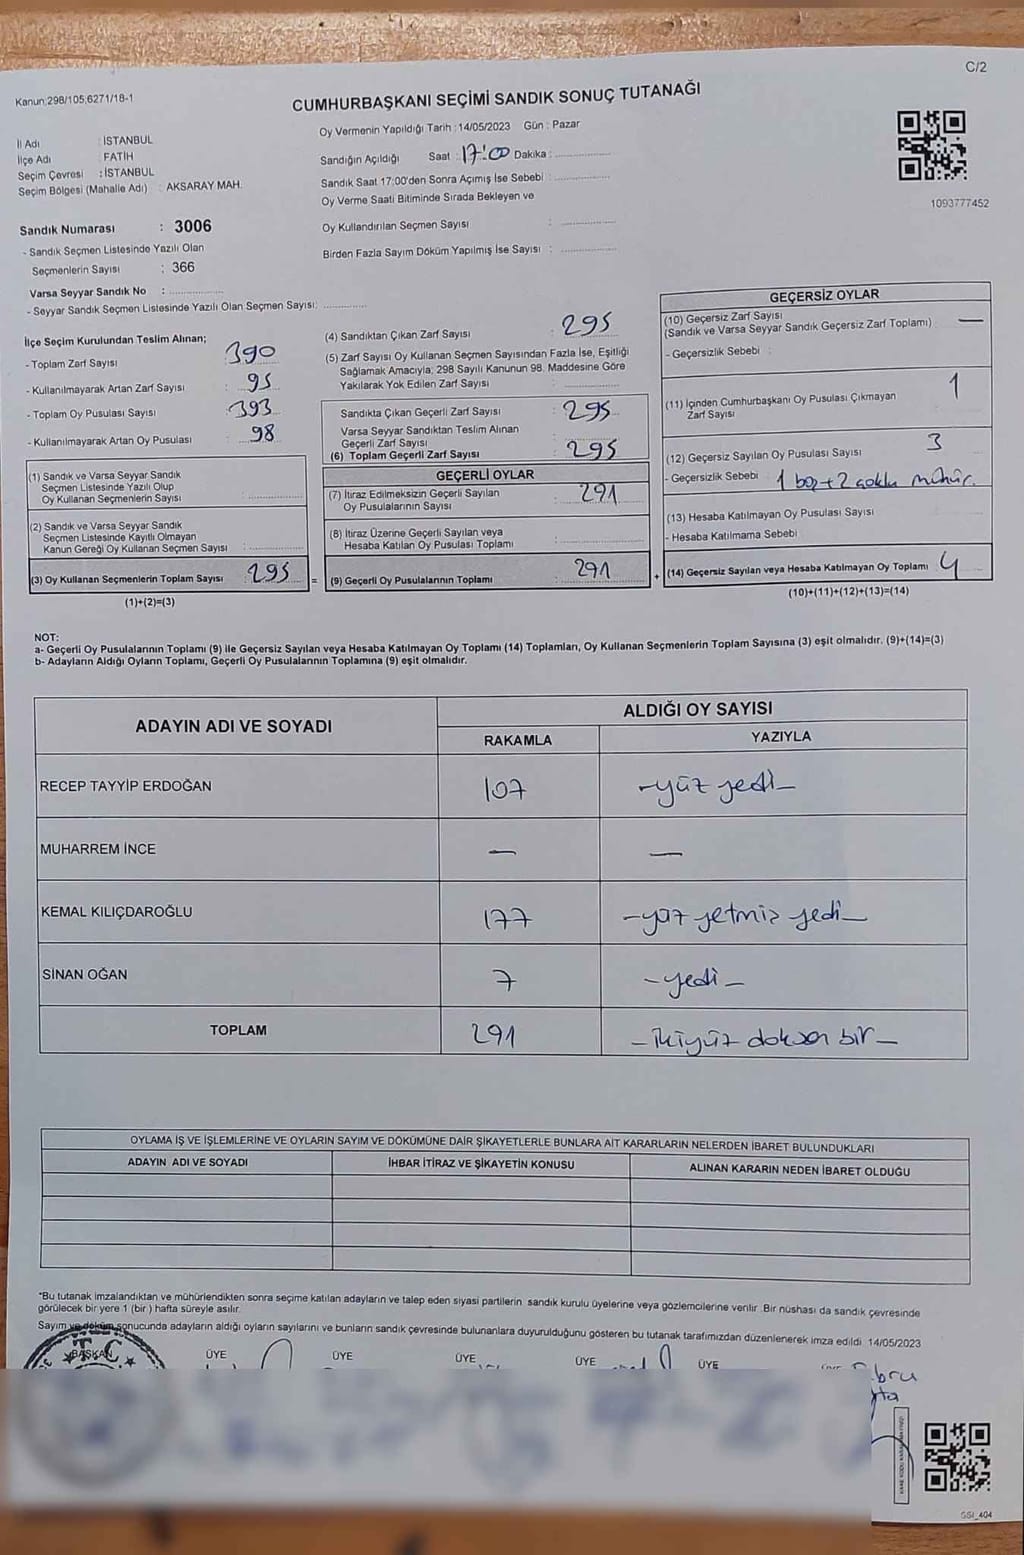 C/2
Kanun;298/105;6271/18-1
CUMHURBAŞKANI SEÇİMİ SANDIK SONUÇ TUTANAĞI
İl Adı : İSTANBUL
İlçe Adı : FATİH
Seçim Çevresi : İSTANBUL
Seçim Bölgesi (Mahalle Adı) : AKSARAY MAH.
Oy Vermenin Yapıldığı Tarih : 14/05/2023 Gün : Pazar
Sandığın Açıldığı Saat : 17:00 Dakika :
Sandık Saat 17:00'den Sonra Açımış İse Sebebi :
Oy Verme Saati Bitiminde Sırada Bekleyen ve
Oy Kullandırılan Seçmen Sayısı :
Birden Fazla Sayım Döküm Yapılmış İse Sayısı :
1093777452
Sandık Numarası : 3006
- Sandık Seçmen Listesinde Yazılı Olan
Seçmenlerin Sayısı : 366
Varsa Seyyar Sandık No :
- Seyyar Sandık Seçmen Listesinde Yazılı Olan Seçmen Sayısı:
İlçe Seçim Kurulundan Teslim Alınan;
- Toplam Zarf Sayısı : 390
- Kullanılmayarak Artan Zarf Sayısı : 95
- Toplam Oy Pusulası Sayısı : 393
- Kullanılmayarak Artan Oy Pusulası : 98
(1) Sandık ve Varsa Seyyar Sandık
Seçmen Listesinde Yazılı Olup
Oy Kullanan Seçmenlerin Sayısı :
(2) Sandık ve Varsa Seyyar Sandık
Seçmen Listesinde Kayıtlı Olmayan
Kanun Gereği Oy Kullanan Seçmen Sayısı :
(3) Oy Kullanan Seçmenlerin Toplam Sayısı : 295
(1)+(2)=(3)
(4) Sandıktan Çıkan Zarf Sayısı : 295
(5) Zarf Sayısı Oy Kullanan Seçmen Sayısından Fazla İse, Eşitliği
Sağlamak Amacıyla; 298 Sayılı Kanunun 98. Maddesine Göre
Yakılarak Yok Edilen Zarf Sayısı :
Sandıkta Çıkan Geçerli Zarf Sayısı : 295
Varsa Seyyar Sandıktan Teslim Alınan
Geçerli Zarf Sayısı :
(6) Toplam Geçerli Zarf Sayısı : 295
GEÇERLİ OYLAR
(7) İtiraz Edilmeksizin Geçerli Sayılan
Oy Pusulalarının Sayısı : 291
(8) İtiraz Üzerine Geçerli Sayılan veya
Hesaba Katılan Oy Pusulası Toplamı :
= (9) Geçerli Oy Pusulalarının Toplamı : 291
GEÇERSİZ OYLAR
(10) Geçersiz Zarf Sayısı
(Sandık ve Varsa Seyyar Sandık Geçersiz Zarf Toplamı) : —
- Geçersizlik Sebebi :
(11) İçinden Cumhurbaşkanı Oy Pusulası Çıkmayan
Zarf Sayısı 1
(12) Geçersiz Sayılan Oy Pusulası Sayısı 3
- Geçersizlik Sebebi 1 boş+2 çoklu mühür.
(13) Hesaba Katılmayan Oy Pusulası Sayısı
- Hesaba Katılmama Sebebi
+ (14) Geçersiz Sayılan veya Hesaba Katılmayan Oy Toplamı 4
(10)+(11)+(12)+(13)=(14)
NOT:
a- Geçerli Oy Pusulalarının Toplamı (9) ile Geçersiz Sayılan veya Hesaba Katılmayan Oy Toplamı (14) Toplamları, Oy Kullanan Seçmenlerin Toplam Sayısına (3) eşit olmalıdır. (9)+(14)=(3)
b- Adayların Aldığı Oyların Toplamı, Geçerli Oy Pusulalarının Toplamına (9) eşit olmalıdır.
ADAYIN ADI VE SOYADI
ALDIĞI OY SAYISI
RAKAMLA YAZIYLA
RECEP TAYYİP ERDOĞAN 107 -yüz yedi-
MUHARREM İNCE — —
KEMAL KILIÇDAROĞLU 177 -yüz yetmiş yedi-
SİNAN OĞAN 7 -yedi-
TOPLAM 291 -ikiyüz doksan bir-
OYLAMA İŞ VE İŞLEMLERİNE VE OYLARIN SAYIM VE DÖKÜMÜNE DAİR ŞİKAYETLERLE BUNLARA AİT KARARLARIN NELERDEN İBARET BULUNDUKLARI
ADAYIN ADI VE SOYADI İHBAR İTİRAZ VE ŞİKAYETİN KONUSU ALINAN KARARIN NEDEN İBARET OLDUĞU
*Bu tutanak imzalandıktan ve mühürlendikten sonra seçime katılan adayların ve talep eden siyasi partilerin sandık kurulu üyelerine veya gözlemcilerine verilir. Bir nüshası da sandık çevresinde
görülecek bir yere 1 (bir ) hafta süreyle asılır.
Sayım ve döküm sonucunda adayların aldığı oyların sayılarını ve bunların sandık çevresinde bulunanlara duyurulduğunu gösteren bu tutanak tarafımızdan düzenlenerek imza edildi. 14/05/2023
BAŞKAN ÜYE ÜYE ÜYE ÜYE ÜYE
T.C.